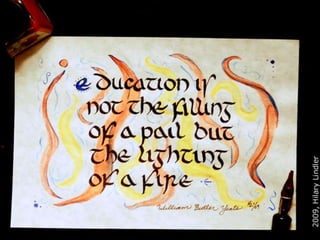 education is
not the filling
of a pail but
the lighting
of a fire
William Butler Yeats
2009, Hilary Lindler